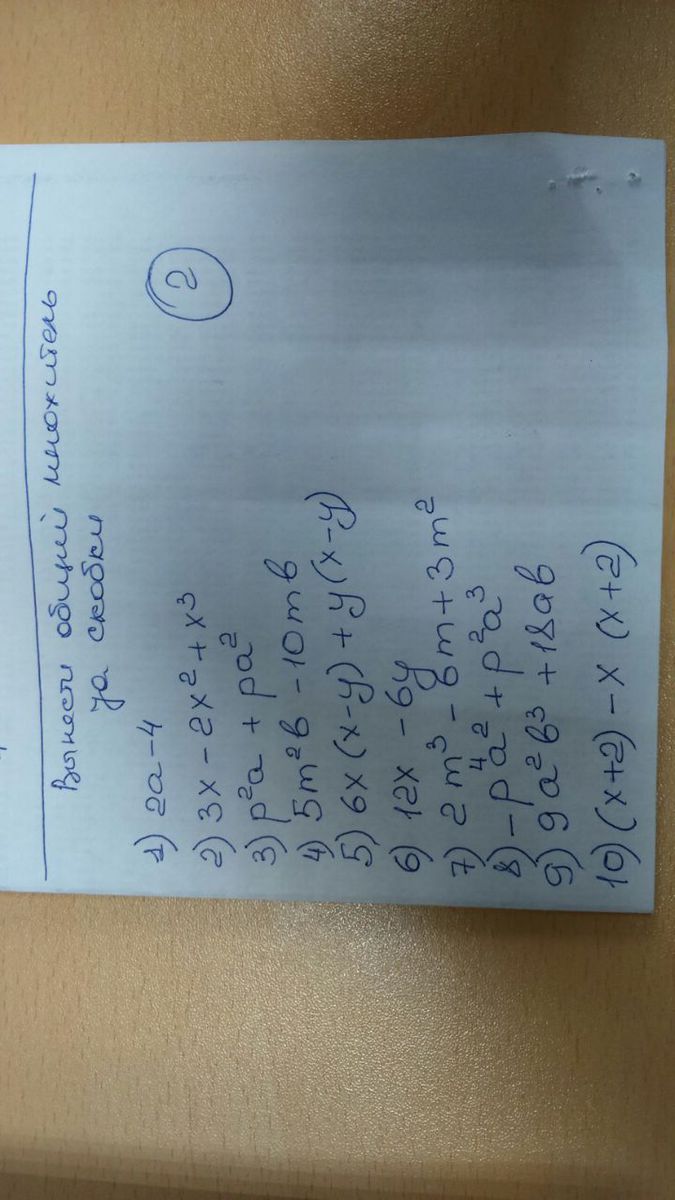 Вынести общий множитель
за скобки
2
1) 2a-4
2) 3x - 2x² + x³
3) p²a + pa²
4) 5m²b - 10mb
5) 6x(x-y) + y(x-y)
6) 12x - 6y
7) 2m³ - 6m + 3m²
8) -p⁴a² + p²a³
9) 9a²b³ + 18ab
10) (x+2) - x (x+2)